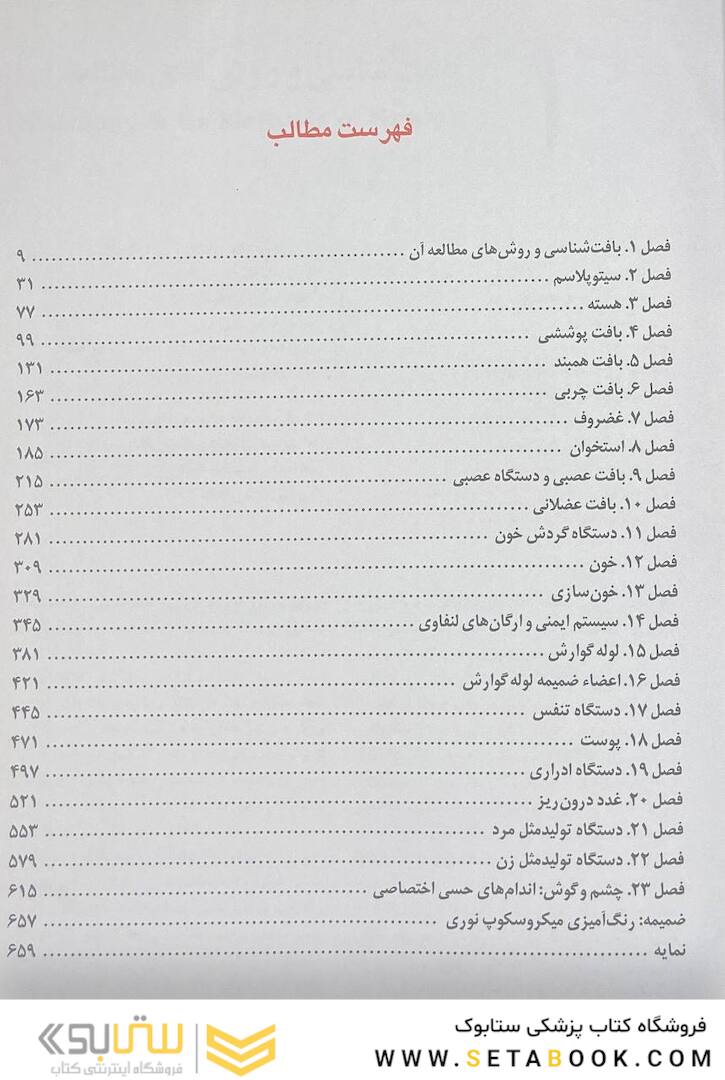 فهرست مطالب
فصل ۱. بافت‌شناسی و روش‌های مطالعه آن ........ ۹
فصل ۲. سیتوپلاسم ........ ۳۱
فصل ۳. هسته ........ ۷۷
فصل ۴. بافت پوششی ........ ۹۹
فصل ۵. بافت همبند ........ ۱۳۱
فصل ۶. بافت چربی ........ ۱۶۳
فصل ۷. غضروف ........ ۱۷۳
فصل ۸. استخوان ........ ۱۸۵
فصل ۹. بافت عصبی و دستگاه عصبی ........ ۲۱۵
فصل ۱۰. بافت عضلانی ........ ۲۵۳
فصل ۱۱. دستگاه گردش خون ........ ۲۸۱
فصل ۱۲. خون ........ ۳۰۹
فصل ۱۳. خون‌سازی ........ ۳۲۹
فصل ۱۴. سیستم ایمنی و ارگان‌های لنفاوی ........ ۳۴۵
فصل ۱۵. لوله گوارش ........ ۳۸۱
فصل ۱۶. اعضاء ضمیمه لوله گوارش ........ ۴۲۱
فصل ۱۷. دستگاه تنفس ........ ۴۴۵
فصل ۱۸. پوست ........ ۴۷۱
فصل ۱۹. دستگاه ادراری ........ ۴۹۷
فصل ۲۰. غدد درون‌ریز ........ ۵۲۱
فصل ۲۱. دستگاه تولیدمثل مرد ........ ۵۵۳
فصل ۲۲. دستگاه تولیدمثل زن ........ ۵۷۹
فصل ۲۳. چشم و گوش: اندام‌های حسی اختصاصی ........ ۶۱۵
ضمیمه: رنگ‌آمیزی میکروسکوپ نوری ........ ۶۵۷
نمایه ........ ۶۵۹
فروشگاه کتاب پزشکی ستابوک
WWW.SETABOOK.COM
ستابوک
فروشگاه اینترنتی کتاب